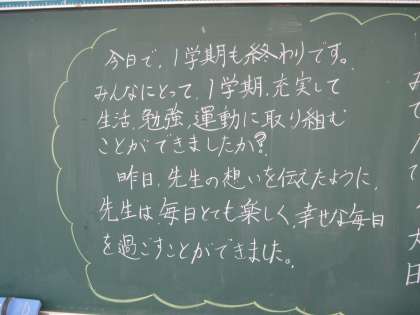 今日で、1学期も終わりです。
みんなにとって、1学期、充実して
生活、勉強、運動に取り組む
ことができましたか?
昨日、先生の想いを伝えたように、
先生は、毎日とても楽しく、幸せな毎日
を過ごすことができました。